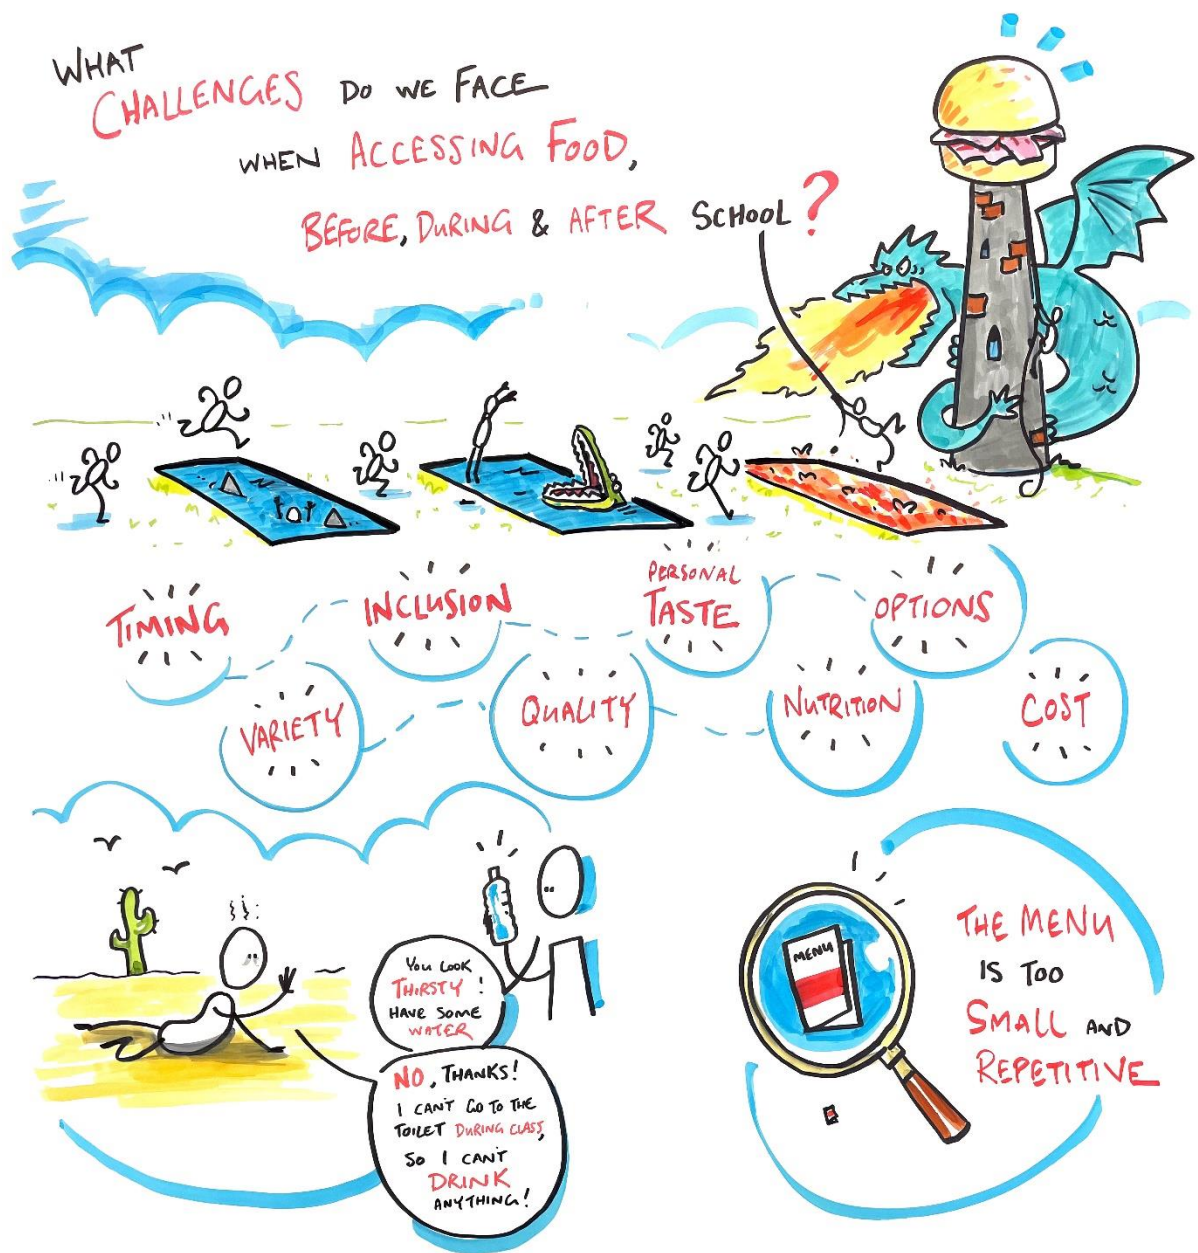 WHAT
CHALLENGES DO WE FACE
WHEN ACCESSING FOOD,
BEFORE, DURING & AFTER SCHOOL?
TIMING
INCLUSION
PERSONAL
TASTE
OPTIONS
VARIETY
QUALITY
NUTRITION
COST
YOU LOOK
THIRSTY!
HAVE SOME
WATER
NO, THANKS!
I CAN'T GO TO THE
TOILET DURING CLASS,
SO I CAN'T
DRINK
ANYTHING!
MENU
THE MENU
IS TOO
SMALL AND
REPETITIVE